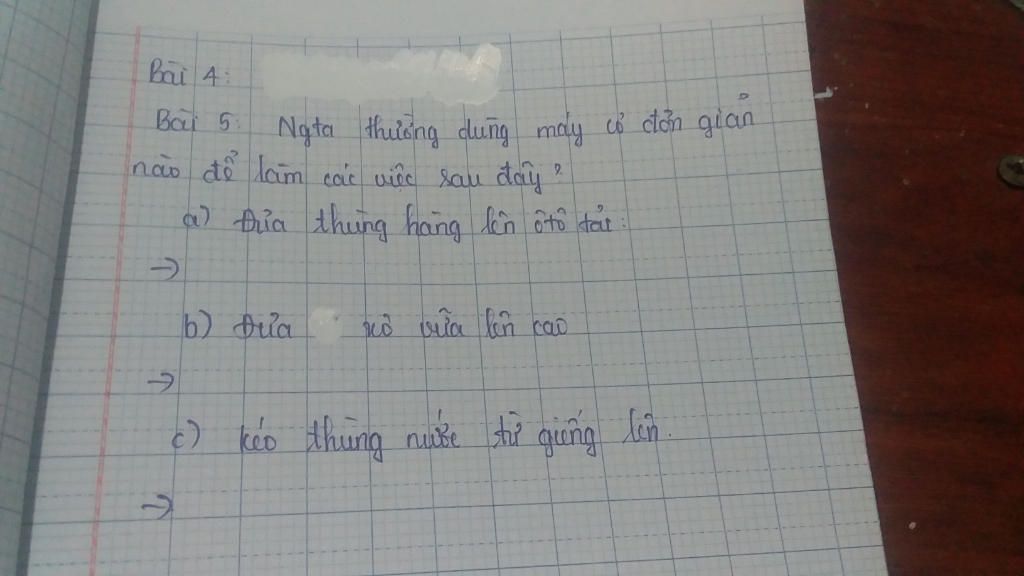 Bài 4:
Bài 5: Ngta thường dùng máy cơ đơn giản
nào để làm các việc sau đây?
a) Đưa thùng hàng lên ôtô tải:
→
b) Đưa xô vữa lên cao
→
c) kéo thùng nước từ giếng lên.
→